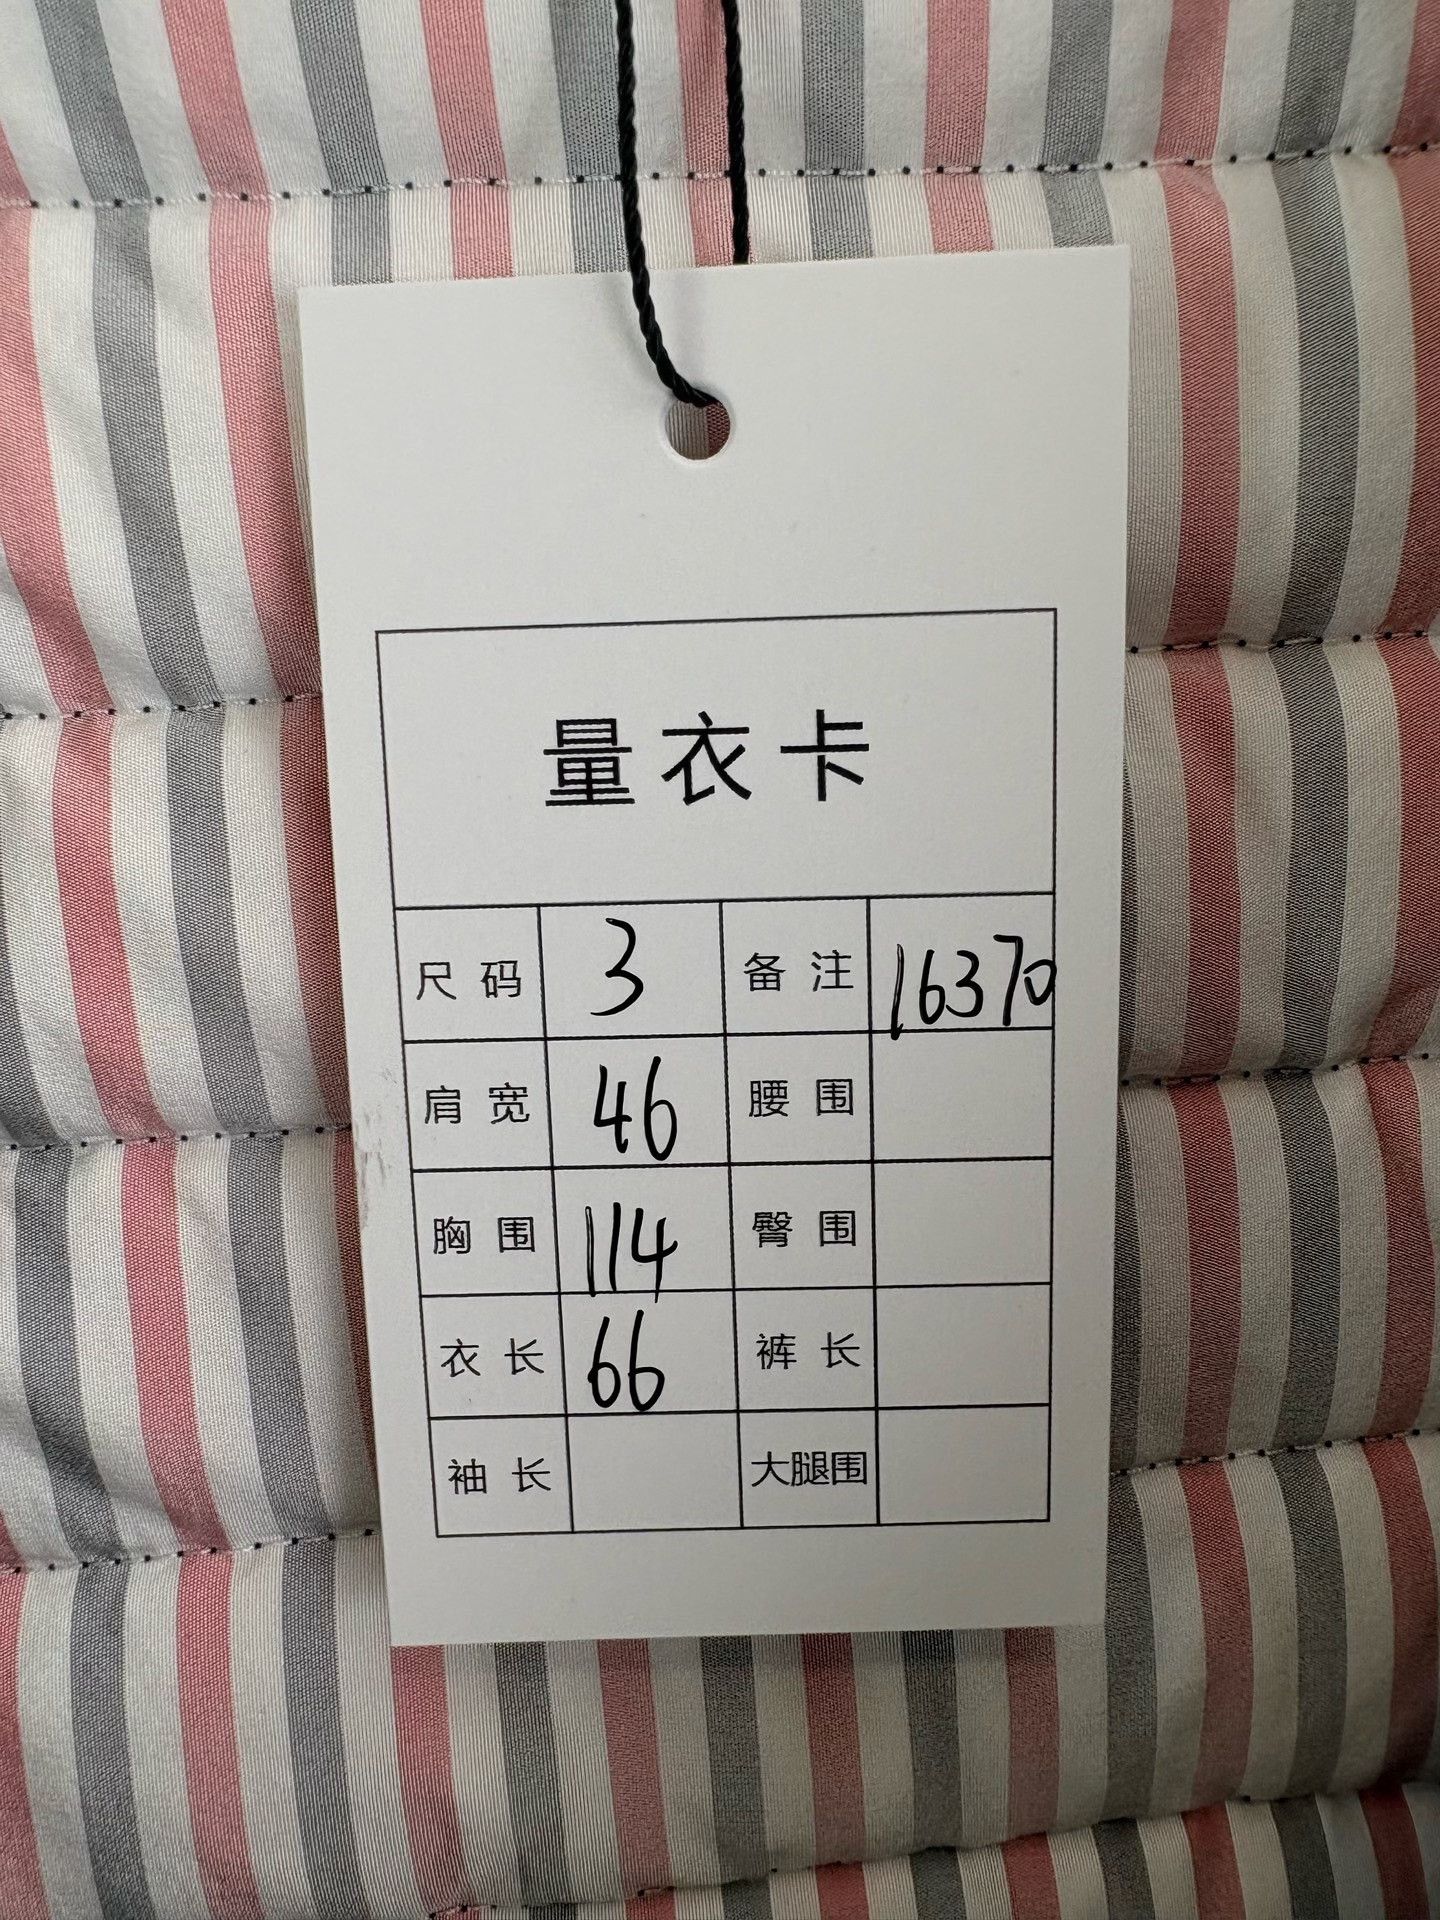 量衣卡
尺码 3 备注 16370
肩宽 46 腰围
胸围 114 臀围
衣长 66 裤长
袖长 大腿围